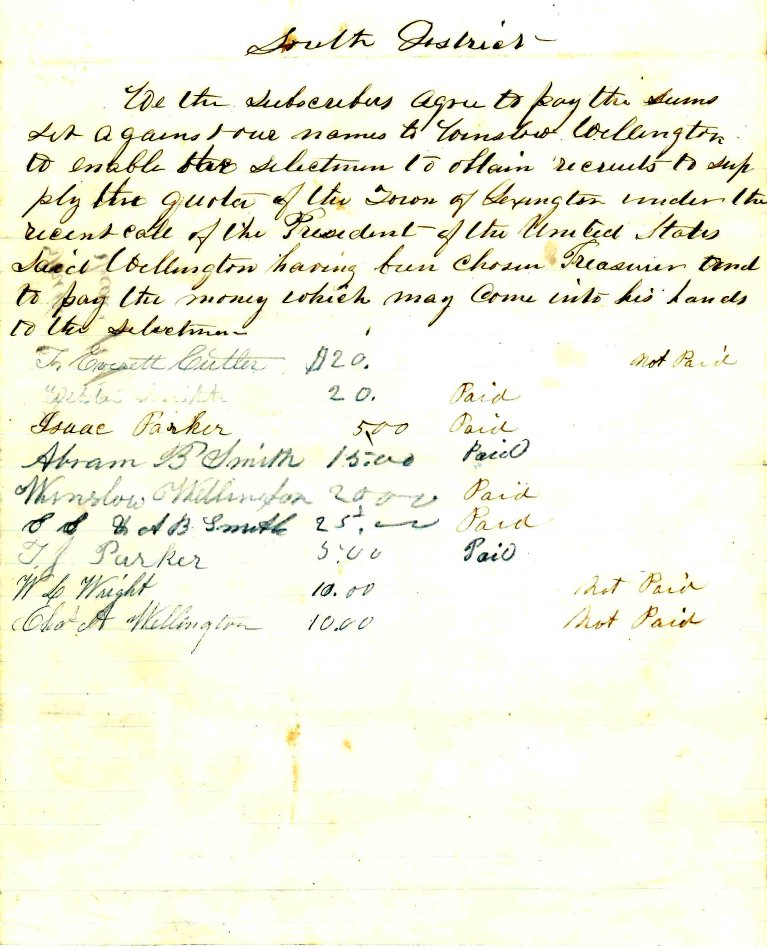 South District
We the subscribers agree to pay the sums
set against our names to Winslow Wellington
to enable the selectmen to obtain recruits to sup
ply the quota of the Town of Lexington under the
recent call of the President of the United States
Said Wellington having been chosen Treasurer and
to pay the money which may come into his hands
to the selectmen
F. Everett Cutler $20. Not Paid
Smith 20. Paid
Isaac Parker 5.00 Paid
Abram B Smith 15.00 Paid
Winslow Wellington 20.00 Paid
S S & A B Smith 25. Paid
T. J Parker 5.00 Paid
W L Wright 10.00 Not Paid
Chas A Wellington 10.00 Not Paid